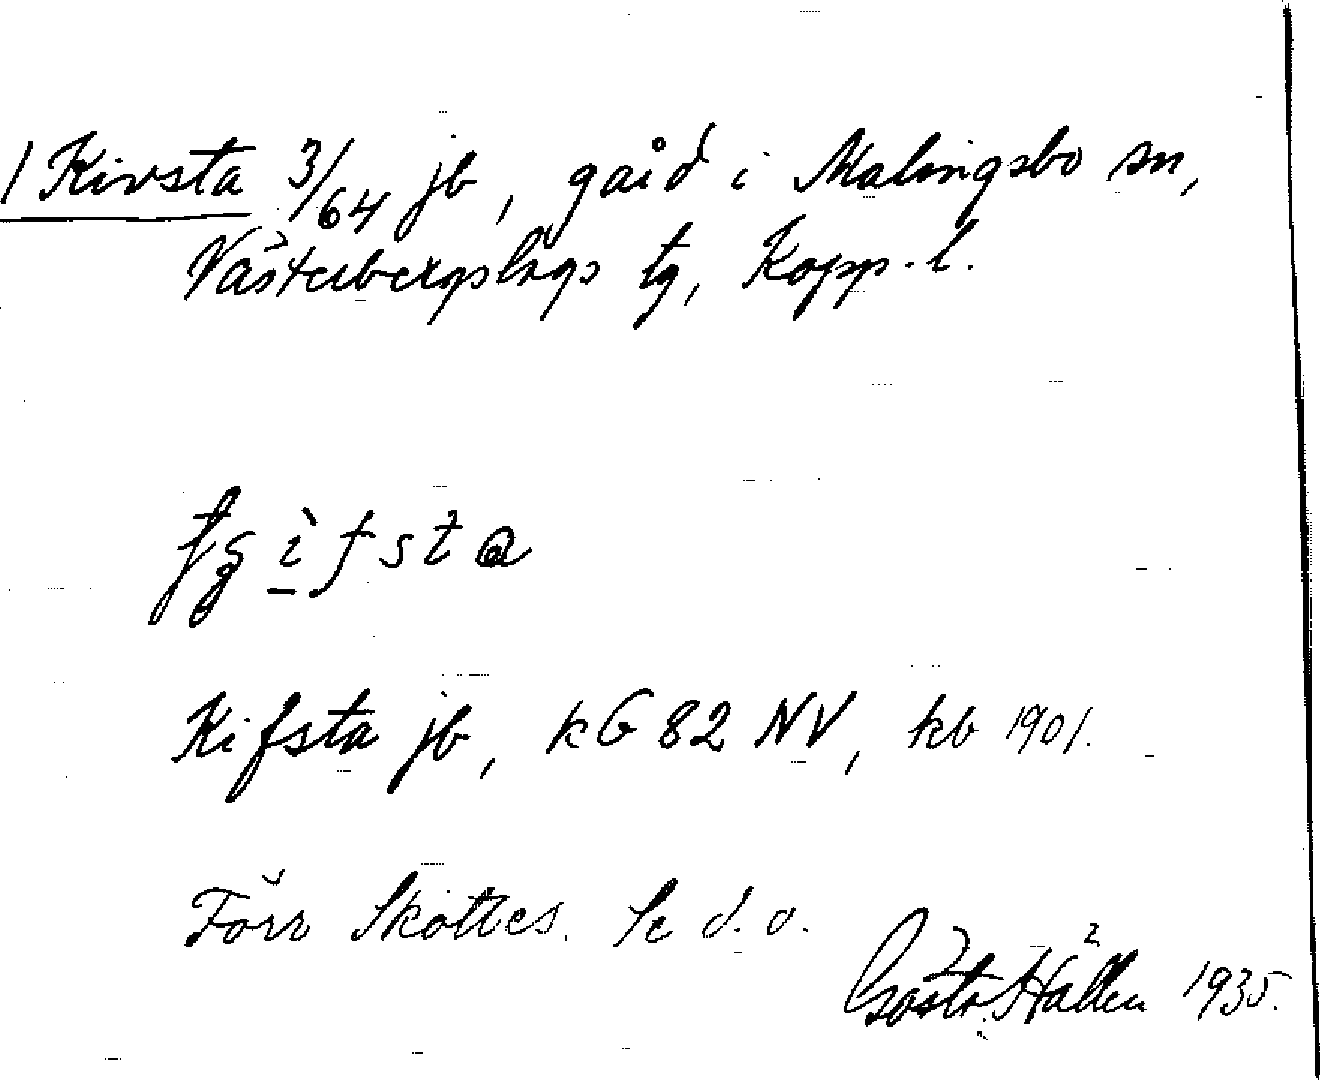 1 Kivsta 3/64 jb, gård i Malingsbo sn,
Västerbergslags tg, Kopp. l.
ifsta
Kifsta jb, kG 82 NV, kb 1901.
Förr Skottes. Se d. o.
Gösta Hallén 1935.